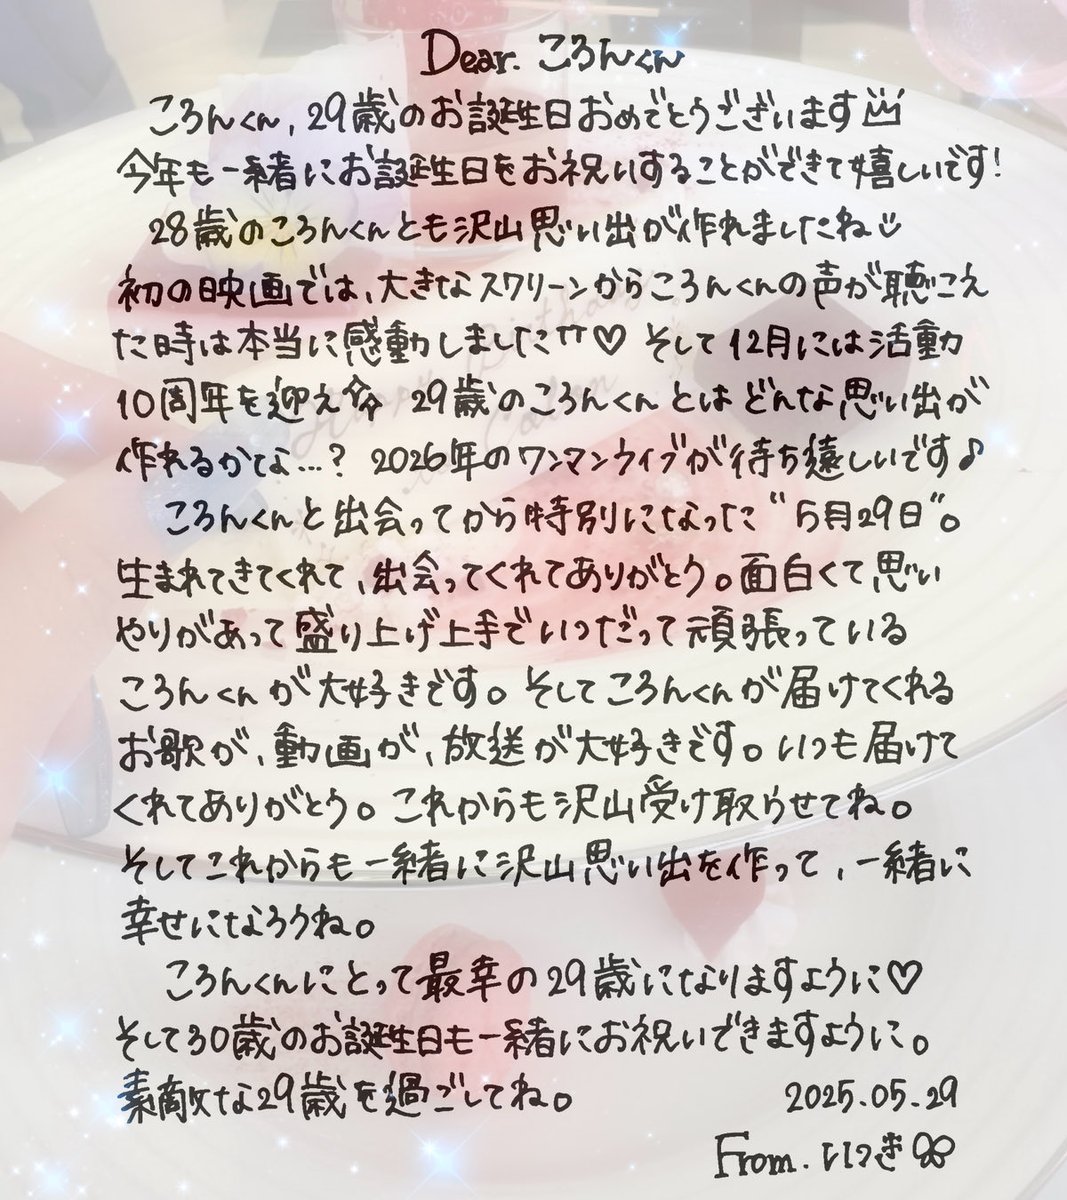 Dear. ころんくん
ころんくん、29歳のお誕生日おめでとうございます
今年も一緒にお誕生日をお祝いすることができて嬉しいです!
28歳のころんくんとも沢山思い出が作れましたね
初の映画では、大きなスクリーンからころんくんの声が聴こえ
た時は本当に感動しました♡ そして12月には活動
10周年を迎え☆ 29歳のころんくんとはどんな思い出が
作れるかな...? 2026年のワンマンライブが待ち遠しいです♪
ころんくんと出会ってから特別になった"5月29日"。
生まれてきてくれて、出会ってくれてありがとう。面白くて思い
やりがあって盛り上げ上手でいつだって頑張っている
ころんくんが大好きです。そしてころんくんが届けてくれる
お歌が、動画が、放送が大好きです。いつも届けて
くれてありがとう。これからも沢山受け取らせてね。
そしてこれからも一緒に沢山思い出を作って、一緒に
幸せになろうね。
ころんくんにとって最幸の29歳になりますように♡
そして30歳のお誕生日も一緒にお祝いできますように。
素敵な29歳を過ごしてね。
2025.05.29
From. いつき
Happy Birthday
Colon